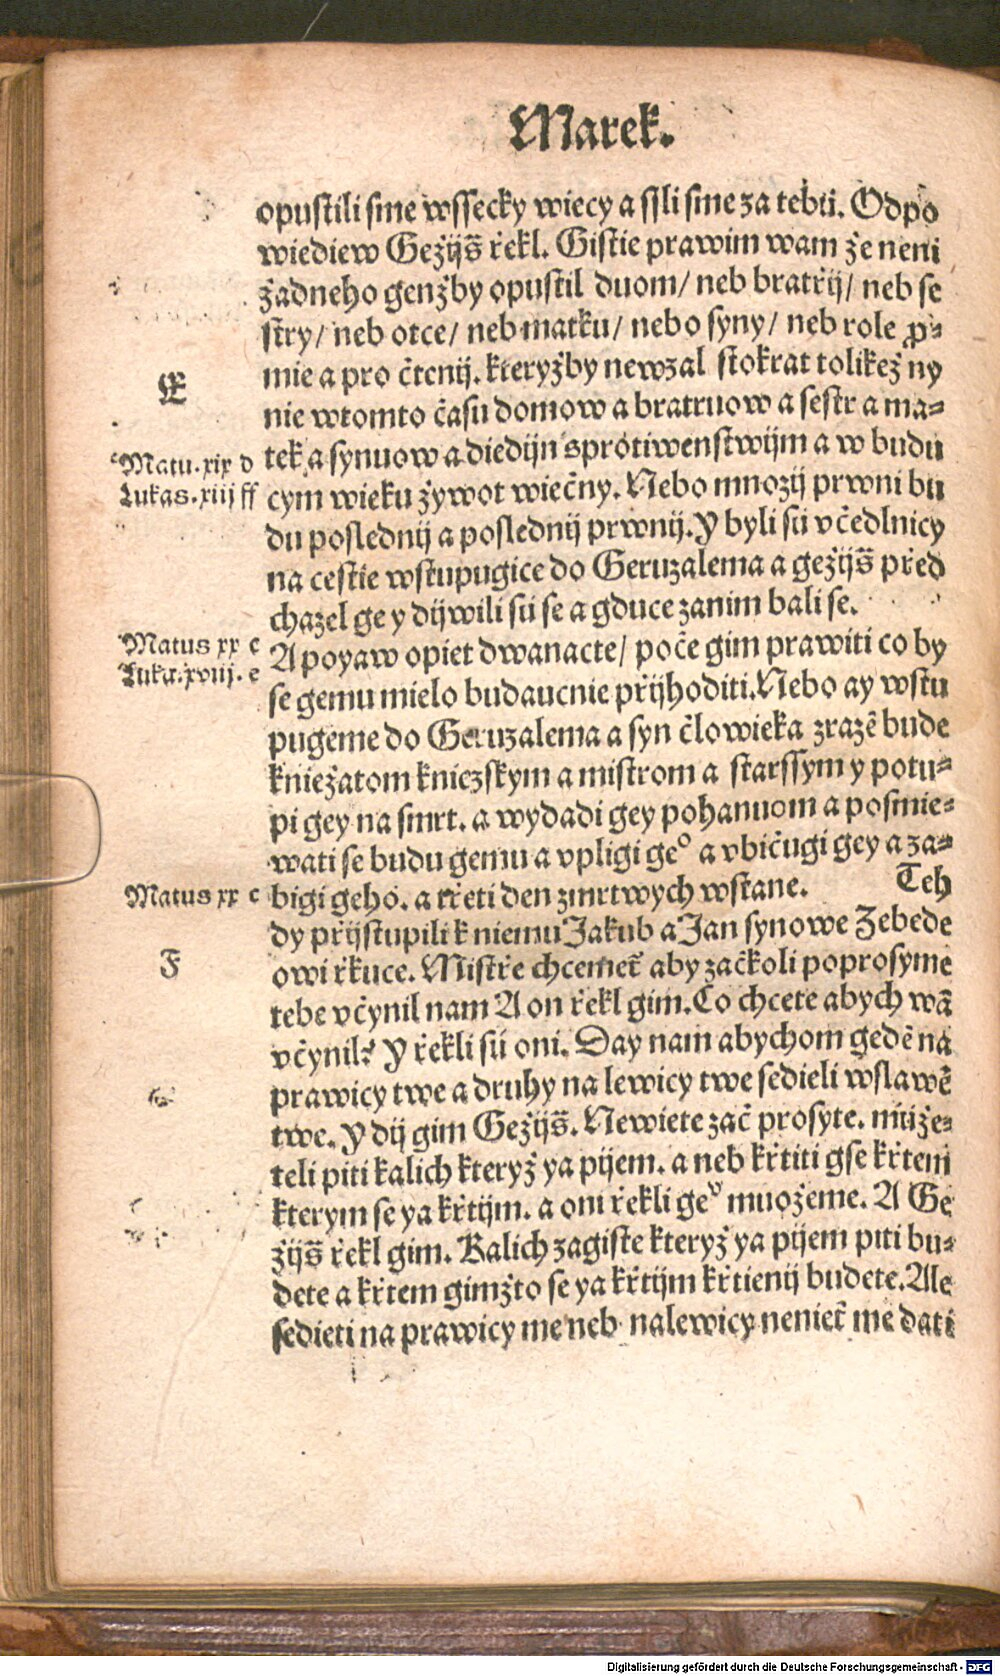 Marek.
opustili sme wssecky wiecy a ssli sme za tebú. Odpo
wiediew Gežijs̃ řekl. Gistie prawim wam že neni
žadneho genžby opustil duom/ neb bratřij/ neb se
stry/ neb otce/ neb matku/ nebo syny/ neb role ꝓ-
mie a pro čtenij. kteryžby newzal stokrat tolikež ny
nie wtomto času domow a bratruow a sestr a ma-
E
tek a synuow a diedijn sprotiwenstwijm a w budu
Matu. xix d
cym wieku žywot wiečny. Nebo mnozij prwni bu
Lukas. xiij ff
du poslednij a poslednij prwnij. Y byli sú včedlnicy
na cestie wstupugice do Geruzalema a gežijs̃ před
chazel ge y dijwili sú se a gduce zanim bali se.
Matus xx c
A poyaw opiet dwanacte/ poče gim prawiti co by
Luka. xviij. e
se gemu mielo budaucnie přijhoditi. Nebo ay wstu
pugeme do Geruzalema a syn človieka zrazẽ bude
kniežatom kniezskym a mistrom a starssym y potu-
pi gey na smrt. a wydadi gey pohanuom a posmie-
wati se budu gemu a vpligi geº a vbičugi gey a za-
Matus xx c
bigi geho. a třeti den zmrtwych wstane. Teh
dy přijstupili k niemu Jakub a Jan synowe Zebede
F
owi řkuce. Mistře chcemeť aby začkoli poprosyme
tebe včynil nam A on řekl gim. Co chcete abych wã
včynil? Y řekli sú oni. Day nam abychom gedẽ na
prawicy twe a druhy na lewicy twe sedieli wslawẽ
twe. Y dij gim Gežijs̃. Newiete zač prosyte. múže-
teli piti kalich kteryž ya pijem. a neb křtiti gse křtem
kterym se ya křtijm. a oni řekli geͮ muožeme. A Ge
žijs̃ řekl gim. Kalich zagiste kteryž ya pijem piti bu-
dete a křtem gimžto se ya křtijm křtienij budete. Ale
sedieti na prawicy me neb nalewicy nenieť me dati
Digitalisierung gefördert durch die Deutsche Forschungsgemeinschaft - DFG